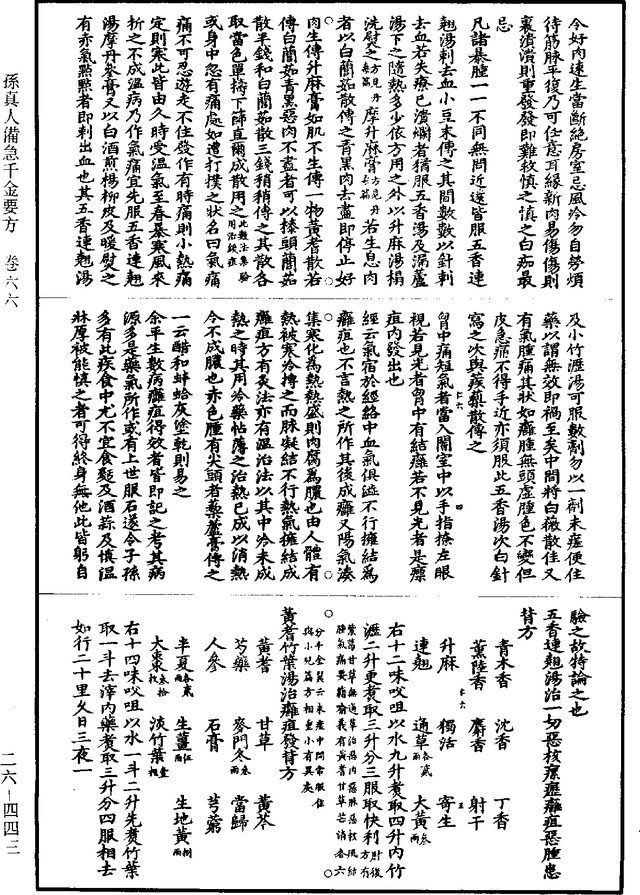 今好肉速生當斷絶房室忌風冷勿自勞煩
待筋脉平復乃可任意耳緣新肉易傷傷則
裏潰潰則重發發即難救慎之慎之白痂最
忌
凡諸暴腫一一不同無問近遠皆服五香連
翹湯刺去血小豆末傅之其間數數以針刺
去血若失療已潰爛者猶服五香湯及漏蘆
湯下之隨熱多少依方用之外以升麻湯搨
洗熨之方見丹毒篇摩升麻膏方見丹毒篇若生息肉
者以白䕡茹散傅之青黑肉去盡即停止好
肉生傅升麻膏如肌不生傅一物黃耆散若
傅白䕡茹青黑惡肉不盡者可以漆頭䕡茹
散半錢和白䕡茹散三錢稍稍傅之其散各
取當色單擣下篩直爾成散用之此數法集驗用治緩疽
或身中忽有痛處如遭打撲之狀名曰氣痛
痛不可忍遊走不住發作有時痛則小熱痛
定則寒此皆由久時受溫氣至春暴寒風來
折之不成溫病乃作氣痛宜先服五香連翹
湯摩丹參膏又以白酒煎楊柳皮及暖熨之
有赤氣點點者即刺出血也其五香連翹湯
及小竹瀝湯可服數劑勿以一劑未瘥便住
藥以謂無效即禍至矣中間將白薇散佳又
有氣腫痛其狀如癰腫無頭虛腫色不變但
皮急痛不得手近亦須服此五香湯次白針
瀉之次與蒺藜散傅之
胷中痛短氣者當入闇室中以手指捺左眼
視若見光者胷中有結癰若不見光者是瘭
疽內發出也
經云氣宿於經絡中血氣俱澁不行擁結爲
癰疽也不言熱之所作其後成癰又陽氣湊
集寒化爲熱熱盛則肉腐爲膿也由人體有
熱被寒冷搏之而脉凝結不行熱氣擁結成
癰疽方有灸法亦有溫治法以其中冷未成
熱之時其用冷藥帖薄之治熱已成以消熱
令不成膿也赤色腫有尖頭者藜蘆膏傅之
一云醋和蚌蛤灰塗乾則易之
余平生數病癰疽得效者皆即記之考其病
源多是藥氣所作或有上世服石遂令子孫
多有此疾食中尤不宜食麵及酒蒜及慎溫
牀厚被能慎之者可得終身無他此皆躬自
驗之故特論之也
五香連翹湯治一切惡核瘰癧癰疽惡腫患
背方
青木香 沈香 丁香
薰陸香 麝香 射干
升麻 獨活 寄生
連翹 通草各貳兩 大黃叁兩
右十二味㕮咀以水九升煑取四升內竹
瀝二升更煑取三升分三服取快利
黃耆竹葉湯治癰疽發背方
黃耆 甘草 黃芩
芍藥 麥門冬各叁兩 當歸
人參 石膏 芎藭
半夏各貳兩 生薑伍兩 生地黃捌兩
大棗叁拾枚 淡竹葉壹握
右十四味㕮咀以水一斗二升先煑竹葉
取一斗去滓內藥煑取三升分四服相去
如行二十里久日三夜一
孫真人備急千金要方 卷六六
二六-四四三